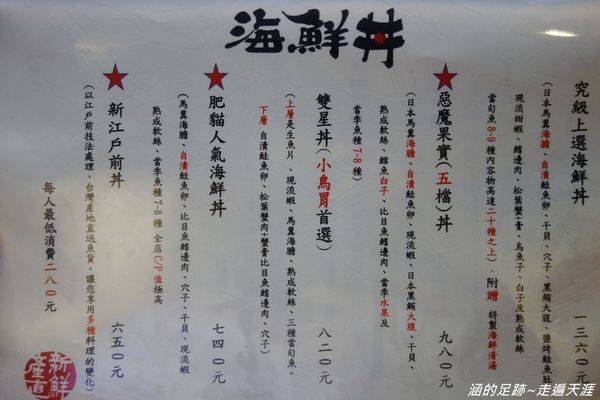 海鮮丼
究級上選海鮮丼
(日本馬糞海膽、自漬鮭魚卵、干貝、穴子、黑鮪大腹、鹽烤鮭魚肚
現流甜蝦、鰭邊肉、松葉蟹+膏、烏魚子、白子及熟成軟絲
當旬魚8-9種內容物高達二十種之上)、附贈 特製海鮮清湯
一三六0元
惡魔果實(五檔)丼
(日本馬糞海膽、自漬鮭魚卵、現流蝦、日本黑鮪大腹、干貝、
熟成軟絲、鱈魚白子、比目魚鰭邊肉、當季水果及
當季魚種7-8種)
九八0元
雙星丼(小鳥胃首選)
(上層是生魚片、現流蝦、馬糞海膽、熟成軟絲、三種當旬魚。
下層 自漬鮭魚卵、松葉蟹肉+蟹膏比目魚鰭邊肉、穴子)
八二0元
肥貓人氣海鮮丼
(馬糞海膽、自漬鮭魚卵、比目魚鰭邊肉、穴子、干貝、現流蝦
熟成軟絲、當季魚種7-8種 全店C/P值極高
七四0元
新江戶前丼
(以江戶前技法處理，台灣產地直送魚貨。讓您享用多種料理的變化)
六五0元
每人最低消費二八0元
新鮮
產直
涵的足跡~走遍天涯